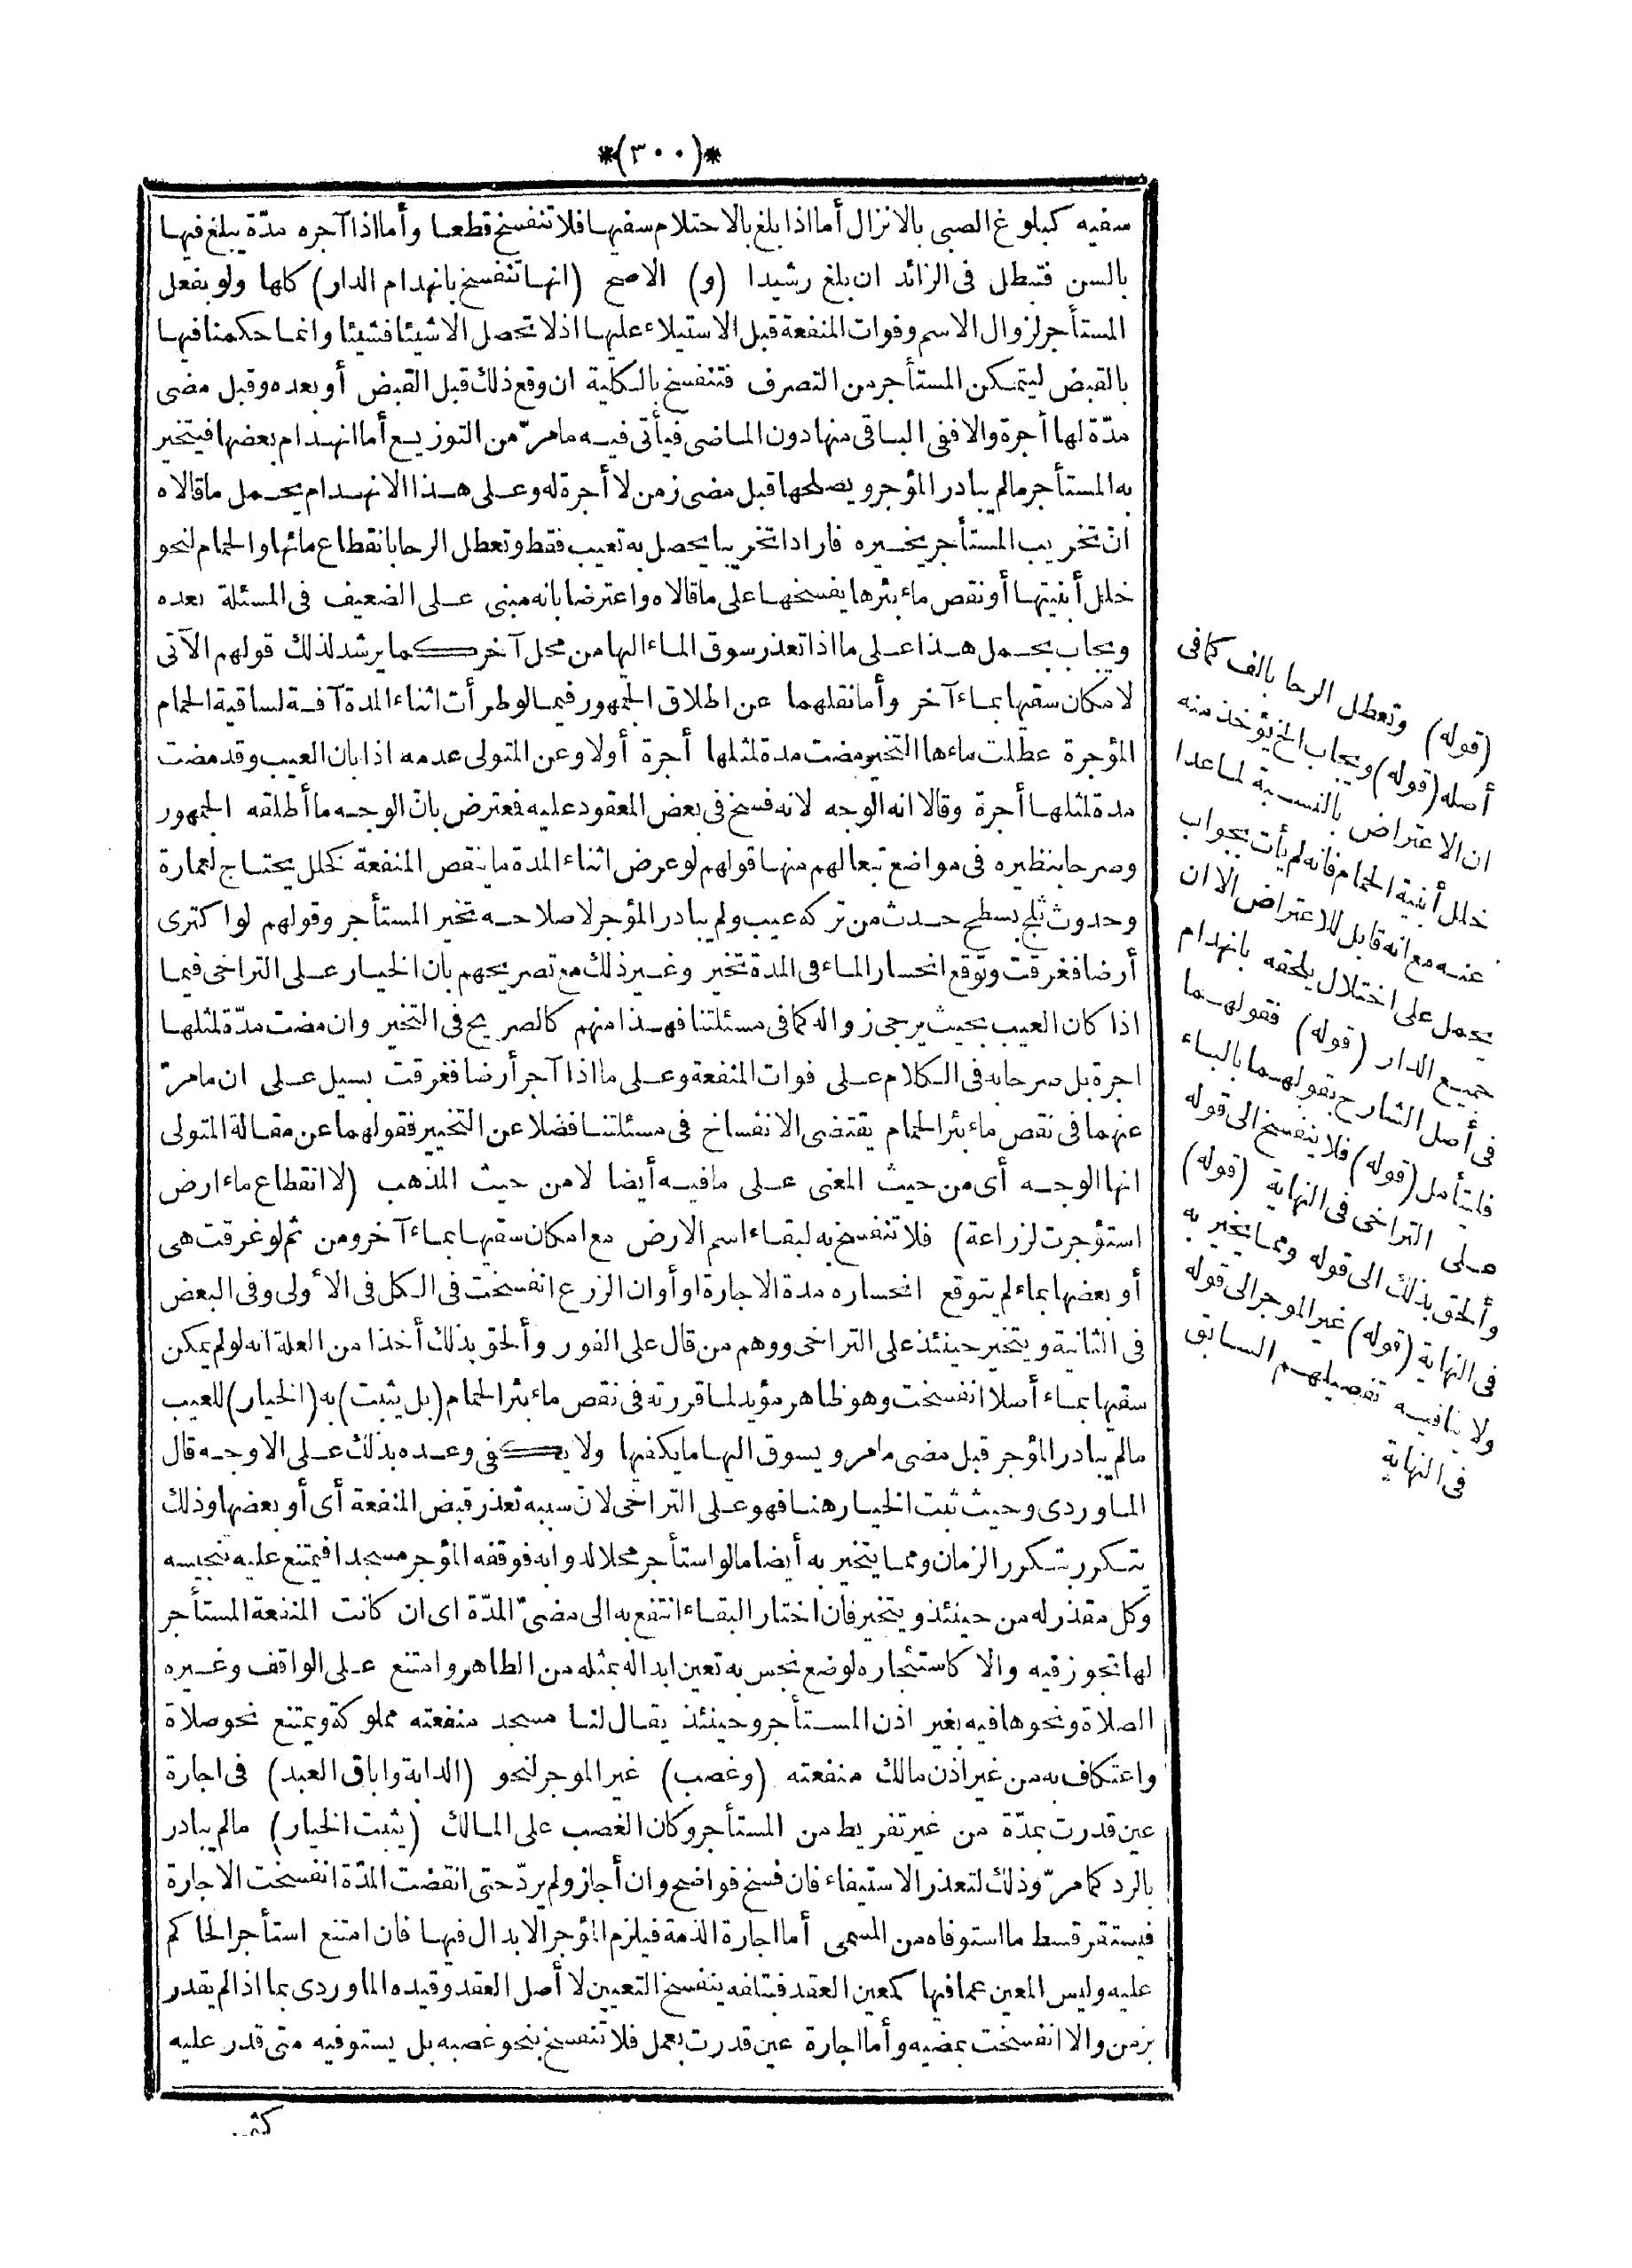 *(٣٠٠)*
سفيه كبلوغ الصبى بالانزال أما اذا بلغ بالاحتلام سفيها فلا تنفسخ قطعا وأما اذا آجره مدّة يبلغ فيها
بالسن فتبطل فى الزائد ان بلغ رشيدا (و) الاصح (انها تنفسخ بانهدام الدار) كلها ولو بفعل
المستأجر لزوال الاسم وفوات المنفعة قبل الاستيلاء عليها اذ لا تحصل الا شيئا فشيئا وانما حكمنا فيها
بالقبض ليتمكن المستأجر من التصرف فتنفسخ بالكلية ان وقع ذلك قبل القبض أو بعده وقبل مضى
مدّة لها أجرة والا ففى الباقى منها دون الماضى فيأتى فيه ما مرّ من التوزيع أما انهدام بعضها فيتخير
به المستأجر مالم يبادر المؤجر ويصلحها قبل مضى زمن لا أجرة له وعلى هذا الانهدام يحمل ما قالاه
انّ تخريب المستأجر يخيره فارادا تخريبا يحصل به تعييب فقط وتعطل الرحا بانقطاع مائها والحمام لنحو
خلل أبنيتها أو نقص ماء بئرها يفسخها على ما قالاه واعترضا بانه مبنى على الضعيف فى المسئلة بعده
ويجاب بحمل هذا على ما اذا تعذر سوق الماء اليها من محل آخر كما يرشد لذلك قولهم الآتى
لامكان سقيها بماء آخر وأما نقلهما عن اطلاق الجمهور فيما لو طرأت اثناء المدة آفة لساقية الحمام
المؤجرة عطلت ماءها التخير مضت مدة لمثلها أجرة أولا وعن المتولى عدمه اذا بان العيب وقد مضت
مدة لمثلها أجرة وقالا انه الوجه لانه فسخ فى بعض المعقود عليه فعترض بانّ الوجه ما أطلقه الجمهور
وصرحا بنظيره فى مواضع تبعا لهم منها قولهم لو عرض اثناء المدة ما ينقص المنفعة كخلل يحتاج لعمارة
وحدوث ثلج بسطح حدث من تركه عيب ولم يبادر المؤجر لاصلاحه تخير المستأجر وقولهم لو اكترى
أرضا فغرقت وتوقع انحسار الماء فى المدة تخير وغير ذلك مع تصريحهم بان الخيار على التراخى فيما
اذا كان العيب بحيث يرجى زواله كما فى مسئلتنا فهذا منهم كالصريح فى التخير وان مضت مدّة لمثلها
اجرة بل صرحا به فى الكلام على فوات المنفعة وعلى ما اذا آجر أرضا فغرقت بسيل على ان ما مرّ
عنهما فى نقص ماء بئر الحمام يقتضى الانفساخ فى مسئلتنا فضلا عن التخيير فقولهما عن مقالة المتولى
انها الوجه أى من حيث المعنى على ما فيه أيضا لا من حيث المذهب (لا انقطاع ماء ارض
استؤجرت لزراعة) فلا تنفسخ به لبقاء اسم الارض مع امكان سقيها بماء آخر ومن ثم لو غرقت هى
أو بعضها بماء لم يتوقع انحساره مدة الاجارة او أوان الزرع انفسخت فى الكل فى الأولى وفى البعض
فى الثانية ويتخير حينئذ على التراخى ووهم من قال على الفور وألحق بذلك أخذا من العلة انه لو لم يمكن
سقيها بماء أصلا انفسخت وهو ظاهر مؤيد لما قررته فى نقص ماء بئر الحمام (بل يثبت) به (الخيار) للعيب
مالم يبادر المؤجر قبل مضى ما مر ويسوق اليها ما يكفيها ولا يكفى وعده بذلك على الاوجه قال
الماوردى وحيث ثبت الخيار هنا فهو على التراخى لانّ سببه تعذر قبض المنفعة أى أو بعضها وذلك
يتكرر بتكرر الزمان ومما يتخير به أيضا ما لو استأجر محلا لدوابه فوقفه المؤجر مسجدا فيمتنع عليه تنجيسه
وكل مقذر له من حينئذ ويتخير فان اختار البقاء انتفع به الى مضىّ المدّة اى ان كانت المنفعة المستأجر
لها تجوز فيه والا كاستئجاره لوضع نجس به تعين ابداله بمثله من الطاهر وامتنع على الواقف وغيره
الصلاة ونحوها فيه بغير اذن المستأجر وحينئذ يقال لنا مسجد منفعته مملوكة ويمتنع نحو صلاة
واعتكاف به من غير اذن مالك منفعته (وغصب) غير الموجر لنحو (الدابة واباق العبد) فى اجارة
عين قدرت بمدّة من غير تفريط من المستأجر وكان الغصب على المالك (يثبت الخيار) مالم يبادر
بالرد كما مرّ وذلك لتعذر الاستيفاء فان فسخ فواضح وان أجاز ولم يردّ حتى انقضت المدّة انفسخت الاجارة
فيستقر قسط ما استوفاه من المسمى أما اجارة الذمة فيلزم المؤجر الابدال فيها فان امتنع استأجر الحاكم
عليه وليس المعين عما فيها كمعين العقد فبتلفه ينفسخ التعيين لا أصل العقد وقيده الماوردى بما اذا لم يقدر
بزمن والا انفسخت بمضيه وأما اجارة عين قدرت بعمل فلا تنفسخ بنحو غصبه بل يستوفيه متى قدر عليه
(قوله) وتعطل الرحا بالف كما فى
أصله (قوله) ويجاب الخ يؤخذ منه
ان الاعتراض بالنسبة لما عدا
خلل أبنية الحمام فانه لم يأت بجواب
عنه مع انه قابل للاعتراض الا ان
يحمل على اختلال يلحقه بانهدام
جميع الدار (قوله) فقولهما
فى أصل الشارح بقولهما بالباء
فليتأمل (قوله) فلا ينفسخ الى قوله
على التراخى فى النهاية (قوله)
وألحق بذلك الى قوله ومما يتخير به
فى النهاية (قوله) غير الموجر الى قوله
ولا ينافيه تفصيلهم السابق
فى النهاية